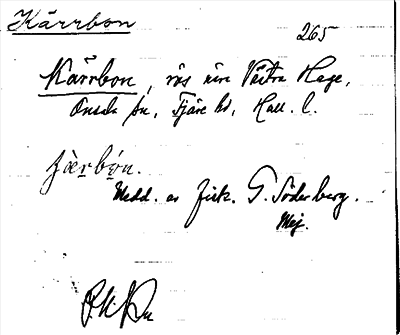 Kärrbon
265
Kärrbon, rös nära Västra Hage,
Onsala sn, Fjäre hd, Hall. l.
jæ̀rbón.
Medd. av fisk. G. Söderberg.
Maj.